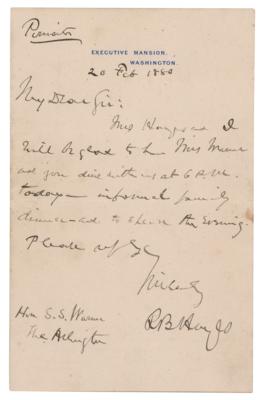 Private
EXECUTIVE MANSION.
WASHINGTON.
20 Feb 1880
My Dear Sir:
Mrs Hayes and I
will be glad to have Mrs Warner
and you dine with us at 6 P.M.
today - informal family
dinner - and to spend the evening.
Please
Sincerely
R B Hayes
Hon. S. S. Warner
The Arlington